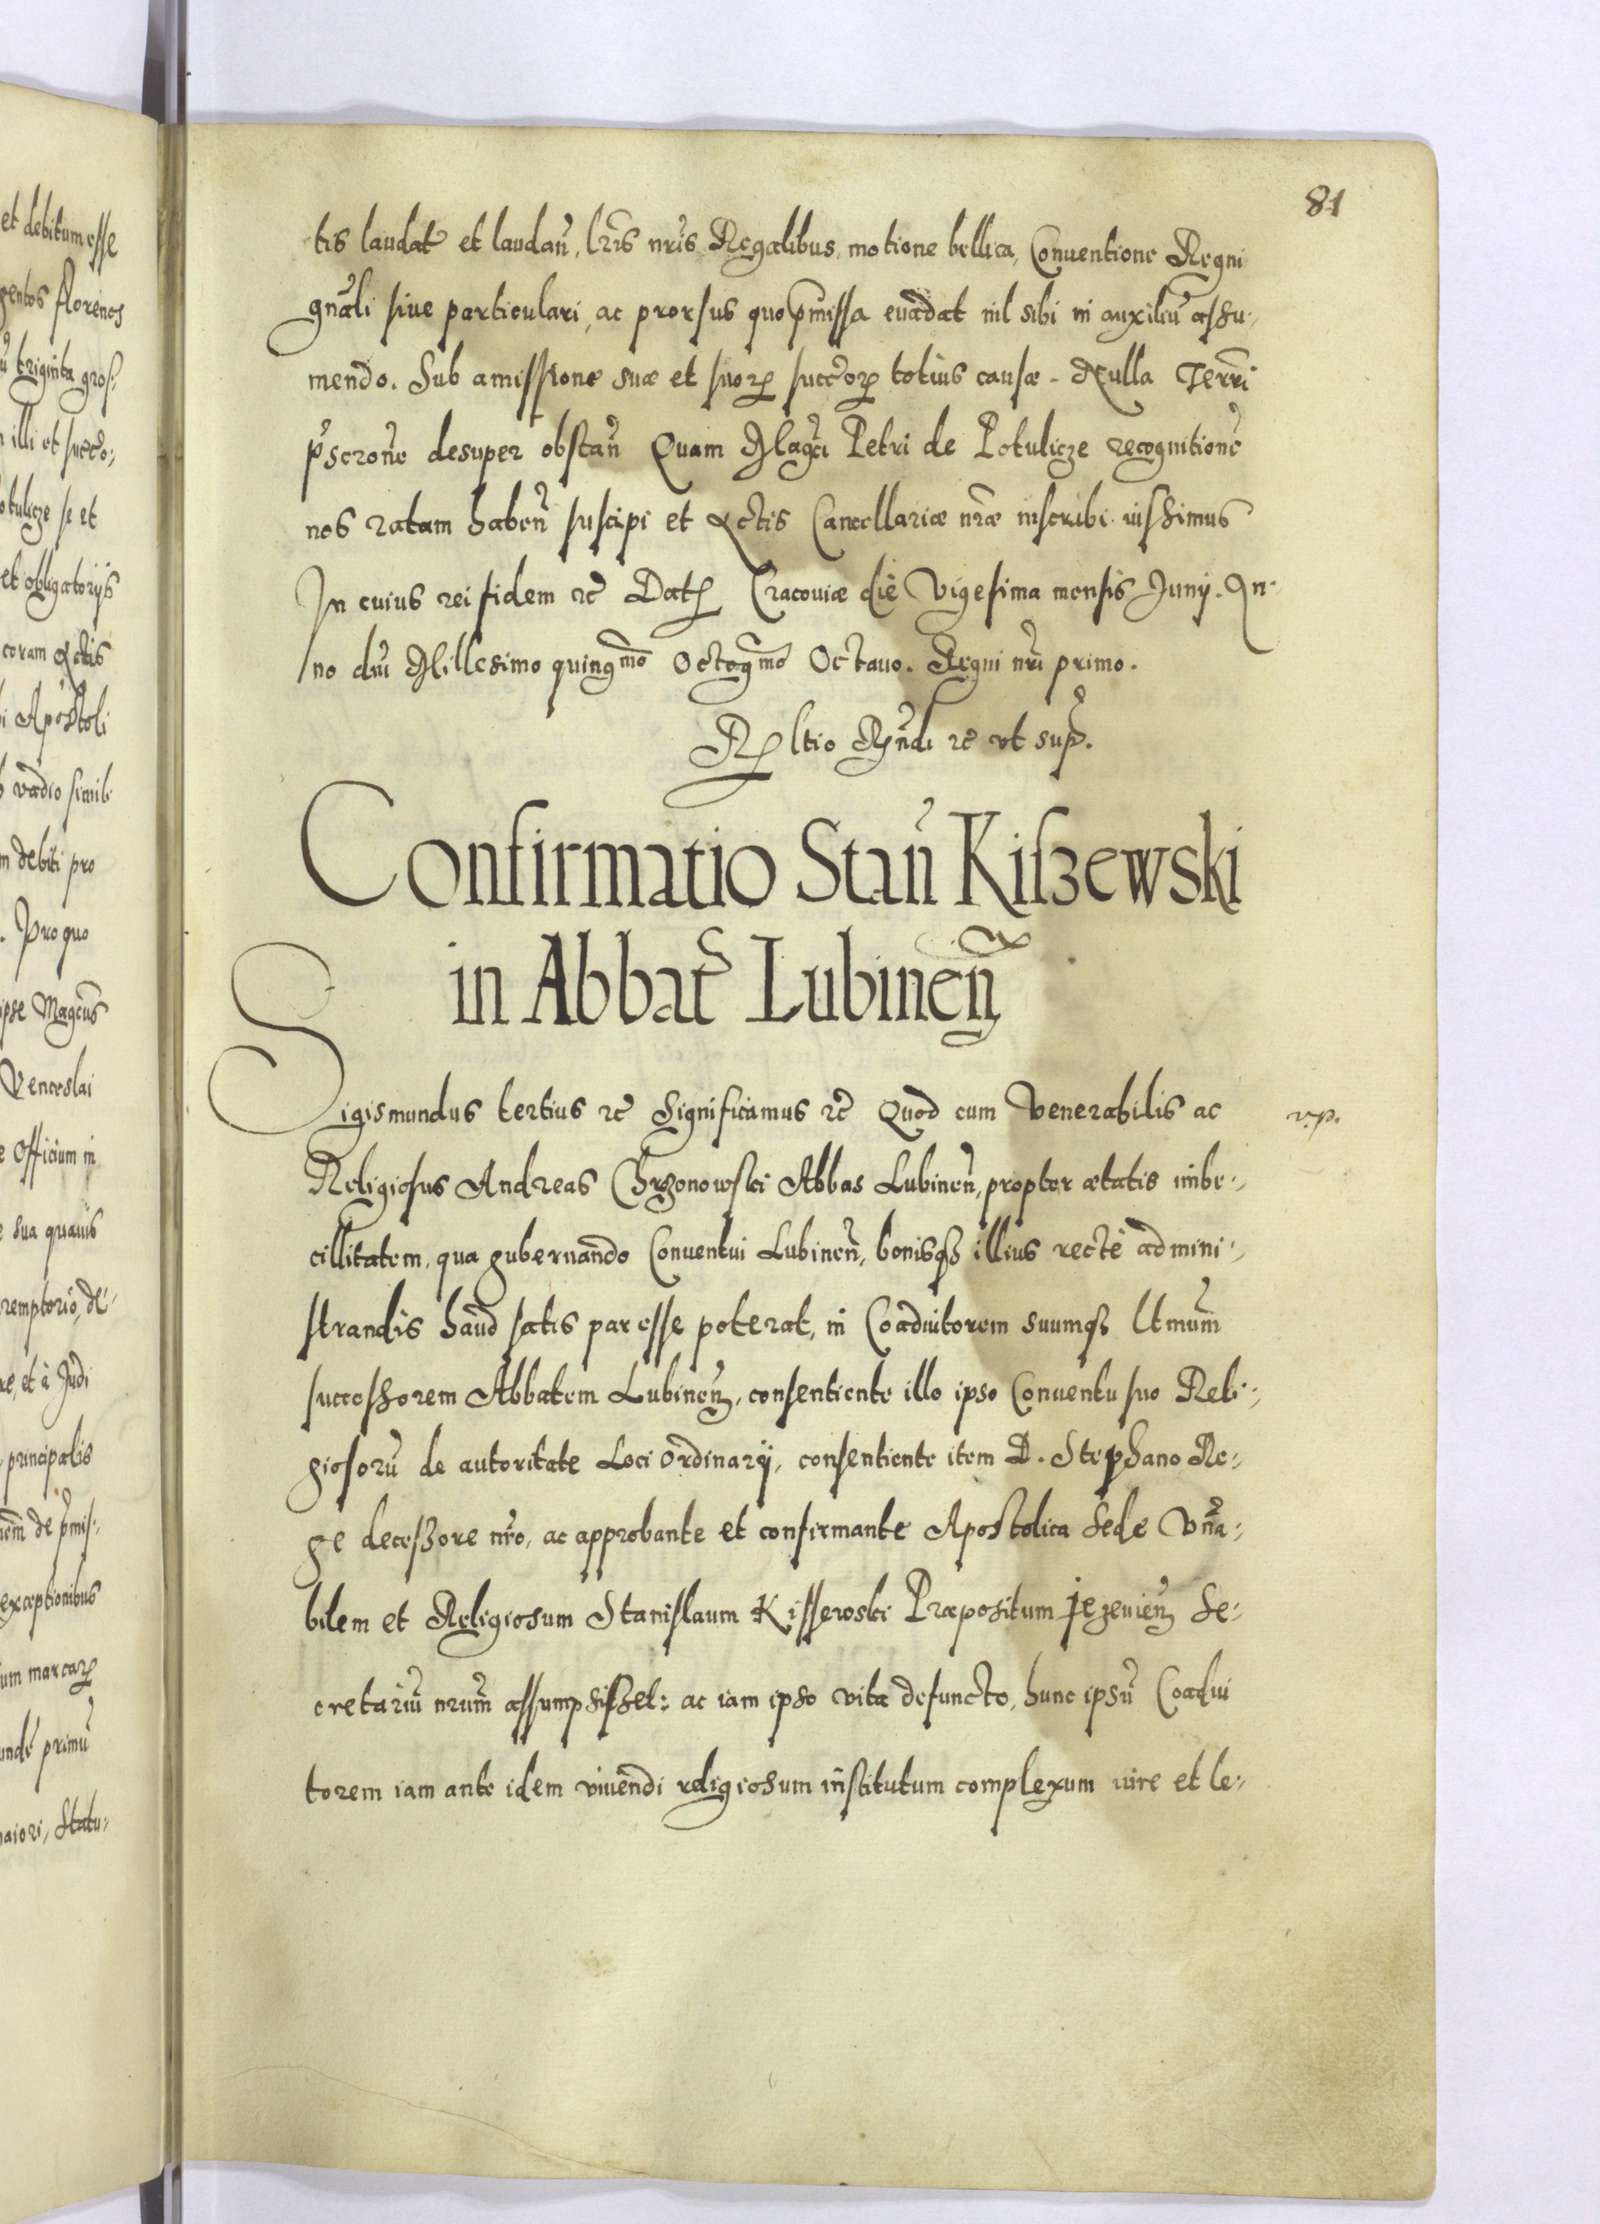 81
tis laudat et laudan̄, lr̄is nr̄is Regalibus, motione bellica, Conventione Regni
gn̄ali siue particulari, ac prorsus quo p̄missa euadat nil sibi in auxiliū assu-
mendo. Sub amissione suæ et suorꝝ succ̄orꝝ totius causæ. Nulla Terr̄i
p̄scr̄one desuper obstan̄ Quam Maḡci Petri de Potulicze recognitionē
nos ratam haben̄ suscipi et Actis Cancellariæ nr̄æ inscribi iussimus
In cuius rei fidem etc Dat Cracouiæ die Vigesima mensis Junij. An-
no dn̄i Millesimo quinḡmo Octoḡmo Octauo. Regni nr̄i primo.
R ltio Rn̄di etc vt sup.
Confirmatio Stan̄ Kiszewski
in Abbat Lubinen̄
Sigismundus tertius etc Significamus etc Quod cum Venerabilis ac
v.p.
Religiosus Andreas Chrzonowski Abbas Lubinen̄, propter ætatis imbe-
cillitatem, qua gubernando Conuentui Lubinen̄, bonisqꝫ illius recte admini-
strandis haud satis par esse poterat, in Coadiutorem suumqꝫ ltimum
successorem Abbatem Lubinen̄, consentiente illo ipso Conuentu suo Reli-
giosorū de autoritate Loci Ordinarij, consentiente item D. Stephano Re-
ge decessore nr̄o, ac approbante et confirmante Apostolica Sede Vn̄ra-
bilem et Religiosum Stanislaum Kissewski Præpositum Jezeuien̄ Se-
cretariū nrūm assumpsisset: ac iam ipso vita defuncto, hunc ipsū Coadiu
torem iam ante idem viuendi religiosum institutum complexum iure et le-
et debitum esse
gentos florenos
triginta gros
illi et succo-
otulicze se et
et obligatorijs
coram Actis
Apostoli
vadio simili
m debiti pro
. Pro quo
ipse Maḡcus
Venceslai
Officium in
sua quauis
remptorio, de-
re, et a Judi
principalis
de p̄mis-
exceptionibus
um marcarꝝ
unde primū
maiori, Statu-